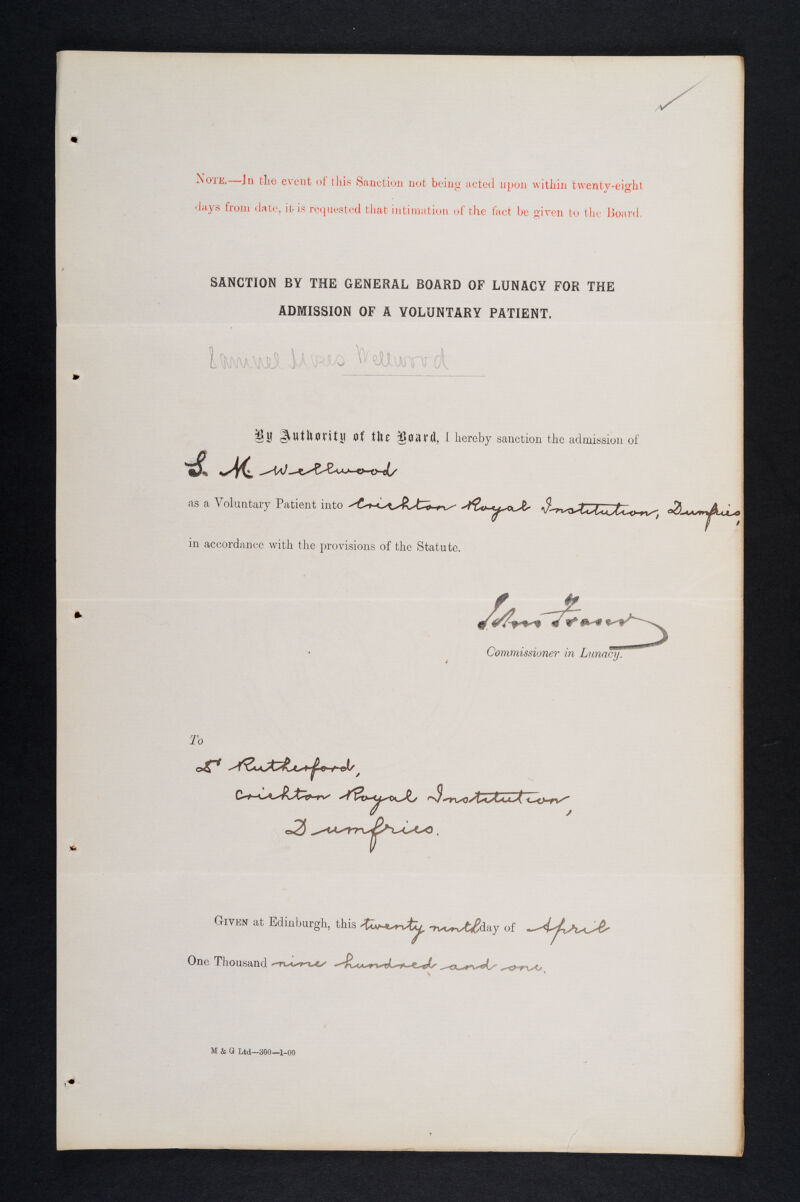 NOTE.—In the event of this Sanction not being acted upon within twenty-eight
days from date, it is requested that intimation of the fact be given to the Board.
SANCTION BY THE GENERAL BOARD OF LUNACY FOR THE
ADMISSION OF A VOLUNTARY PATIENT.
Samuel Moses Wellwood
By Authority of the Board, I hereby sanction the admission of
S. M. Wellwood
as a Voluntary Patient into Crichton Royal Institution, Dumfries,
in accordance with the provisions of the Statute.
John Fraser
Commissioner in Lunacy.
To
Dr Rutherford,
Crichton Royal Institution,
Dumfries.
GIVEN at Edinburgh, this twenty ninth day of April
One Thousand nine hundred and one.
M & G Ltd—300—1-00